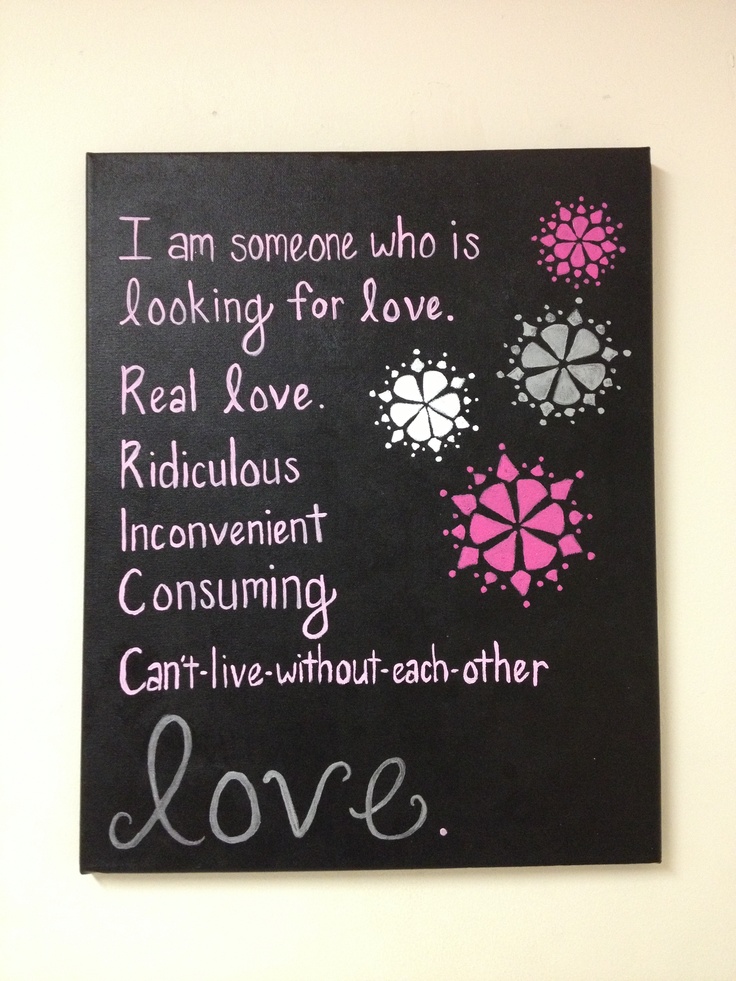 I am someone who is
looking for love.
Real love.
Ridiculous
Inconvenient
Consuming
Can't-live-without-each-other
love.